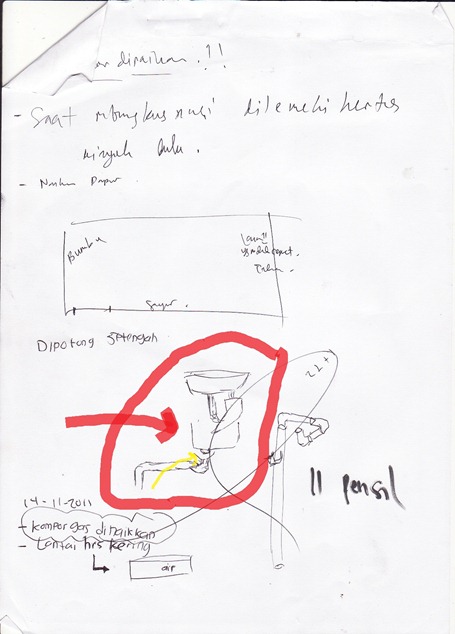 dinaikan.!!
- Saat mbungkus nasi dilemeki kertas
minyak dulu.
- Dapur
Bumbu
Sayur.
Dipotong setengah
22+
11 pensil
14-11-2011
- kompor gas dinaikkan
- Lantai hrs kering
air